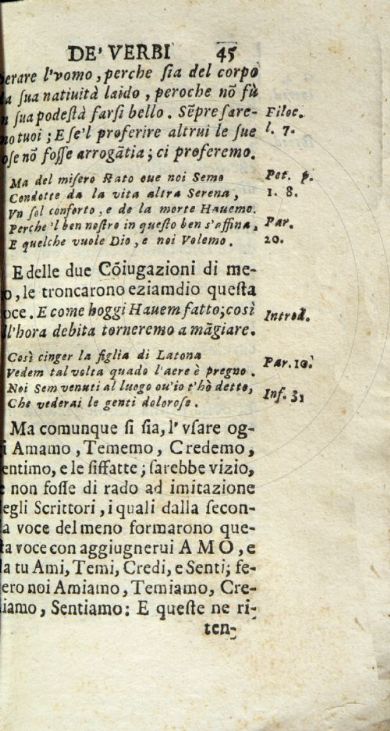 DE' VERBI 45
erare l'vomo, perche sia del corpò
a sua natiuità laido, peroche nõ fù
sua podestà farsi bello. Sẽpre sare-
Filoc.
no tuoi; E se'l proferire altrui le sue
l. 7.
ose nõ fosse arrogãtia; ci proferemo.
Ma del misero stato oue noi Semo
Pet. p.
Condotte da la vita altra Serena,
1. 8.
Vn sol conforto, e de la morte Hauemo.
Perche 'l ben nostro in questo ben s'affina,
Par.
E quelche vuole Dio, e noi Volemo.
20.
E delle due Cõiugazioni di me-
o, le troncarono eziamdio questa
oce. E come hoggi Hauem fatto; così
Introd.
ll'hora debita torneremo a mãgiare.
Così cinger la figlia di Latona
Par. 10.
Vedem tal volta quado l'aere è pregno.
Noi Sem venuti al luogo ou'io t'hò detto,
Inf. 31
Che vederai le genti dolorose.
Ma comunque si sia, l'vsare og-
i Amamo, Tememo, Credemo,
entimo, e le siffatte; sarebbe vizio,
e non fosse di rado ad imitazione
egli Scrittori, i quali dalla secon-
a voce del meno formarono que-
ta voce con aggiugnerui AMO, e
a tu Ami, Temi, Credi, e Senti; fe-
ero noi Amiamo, Temiamo, Cre-
iamo, Sentiamo: E queste ne ri-
ten-